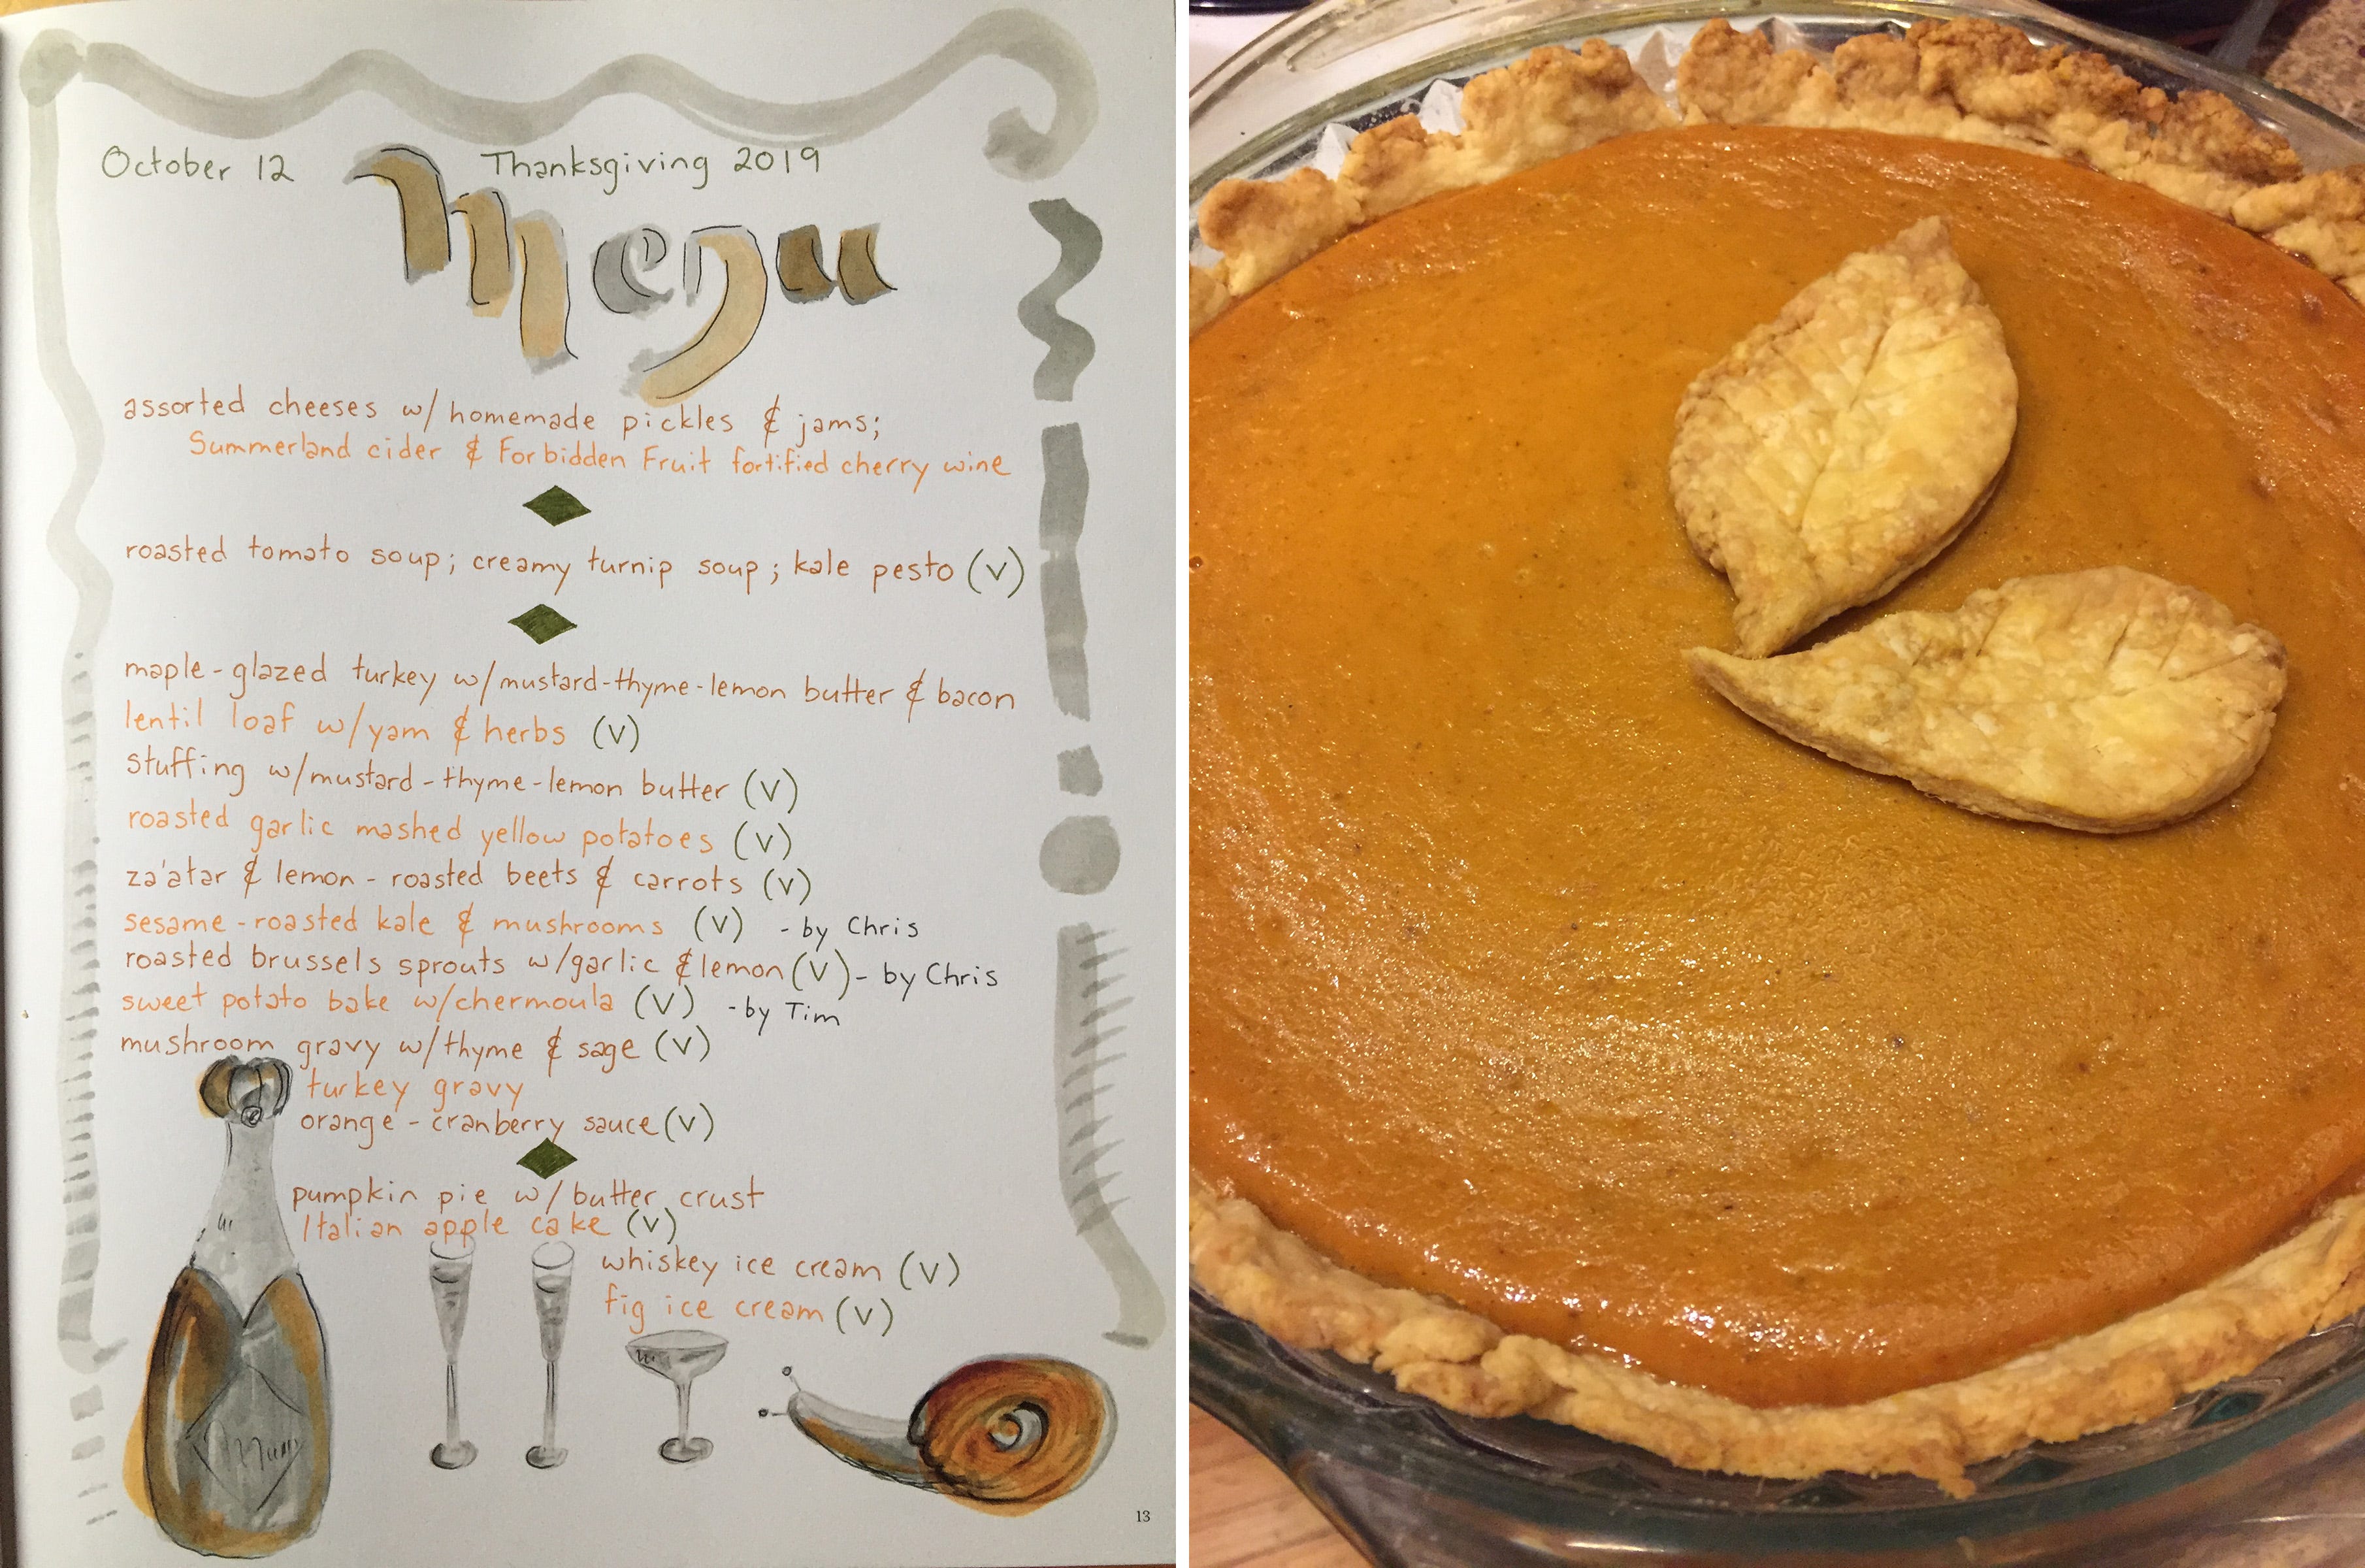 October 12
Thanksgiving 2019
Menu
assorted cheeses w/homemade pickles & jams;
Summerland cider & Forbidden Fruit fortified cherry wine
roasted tomato soup; creamy turnip soup; kale pesto (V)
maple-glazed turkey w/mustard-thyme-lemon butter & bacon
lentil loaf w/yam & herbs (V)
stuffing w/mustard-thyme-lemon butter (V)
roasted garlic mashed yellow potatoes (V)
za'atar & lemon-roasted beets & carrots (V)
sesame-roasted kale & mushrooms (V) - by Chris
roasted brussels sprouts w/garlic & lemon (V) - by Chris
sweet potato bake w/chermoula (V) - by Tim
mushroom gravy w/thyme & sage (V)
turkey gravy
orange-cranberry sauce (V)
pumpkin pie w/butter crust
Italian apple cake (V)
whiskey ice cream (V)
fig ice cream (V)
13